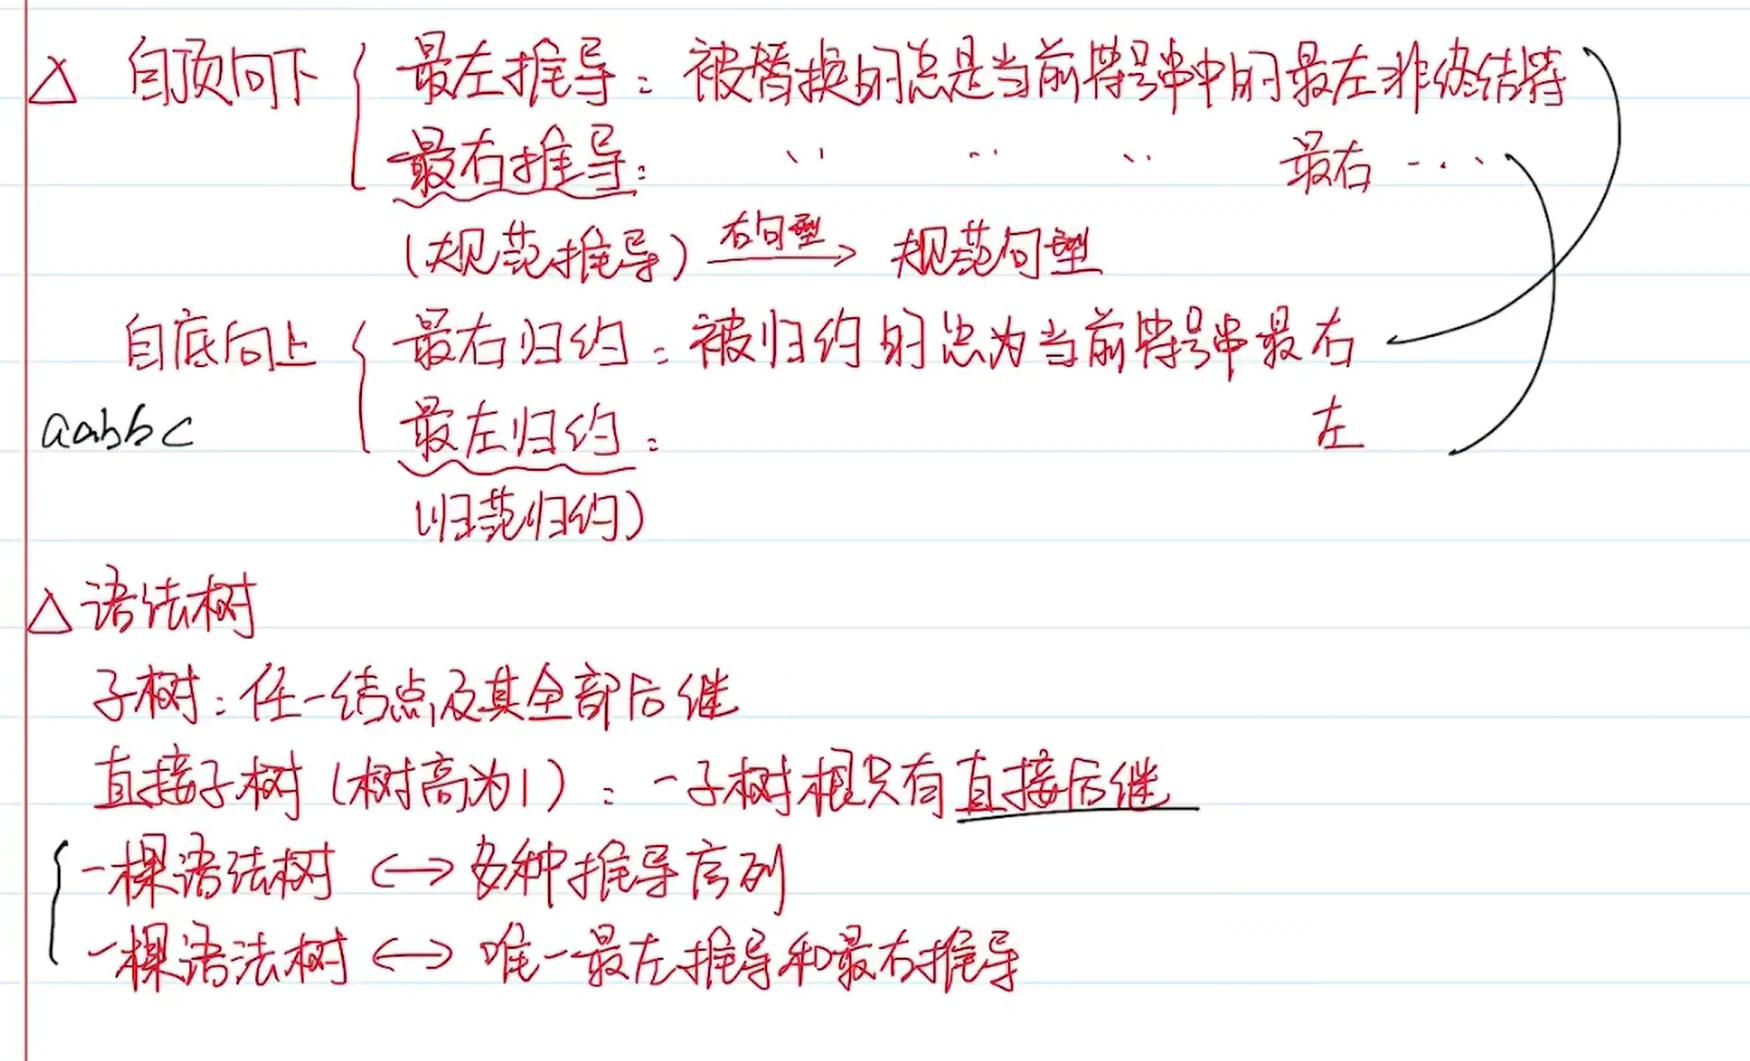 △ 自顶向下 { 最左推导：被替换的总是当前符号串中的最左非终结符
最右推导： 〃 〃 〃 最右 ····
(规范推导) 右句型→ 规范句型
自底向上 { 最右归约：被归约的总为当前符号串最右
aabbc 最左归约： 左
(归范归约)
△ 语法树
子树：任一结点及其全部后继
直接子树 (树高为1)：一子树根只有直接后继
{ 一棵语法树 <-> 多种推导序列
一棵语法树 <-> 唯一最左推导和最右推导